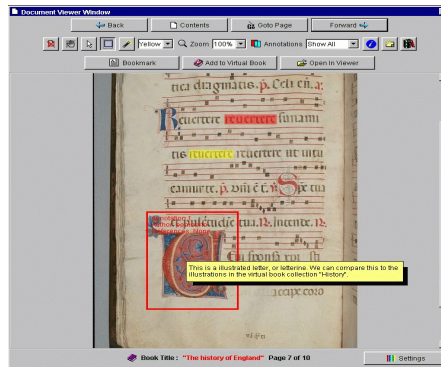 Document Viewer Window
Back Contents Goto Page Forward
Yellow Zoom 100% Annotations Show All
Bookmark Add to Virtual Book Open In Viewer
tica dragmatis. p. Celi
Revertere revertere sunami
tis revertere revertere ut intu
eamur te. p.
tua.
This is a illustrated letter, or letterine. We can compare this to the
illustrations in the virtual book collection "History".
Book Title : "The history of England" Page 7 of 10
Settings